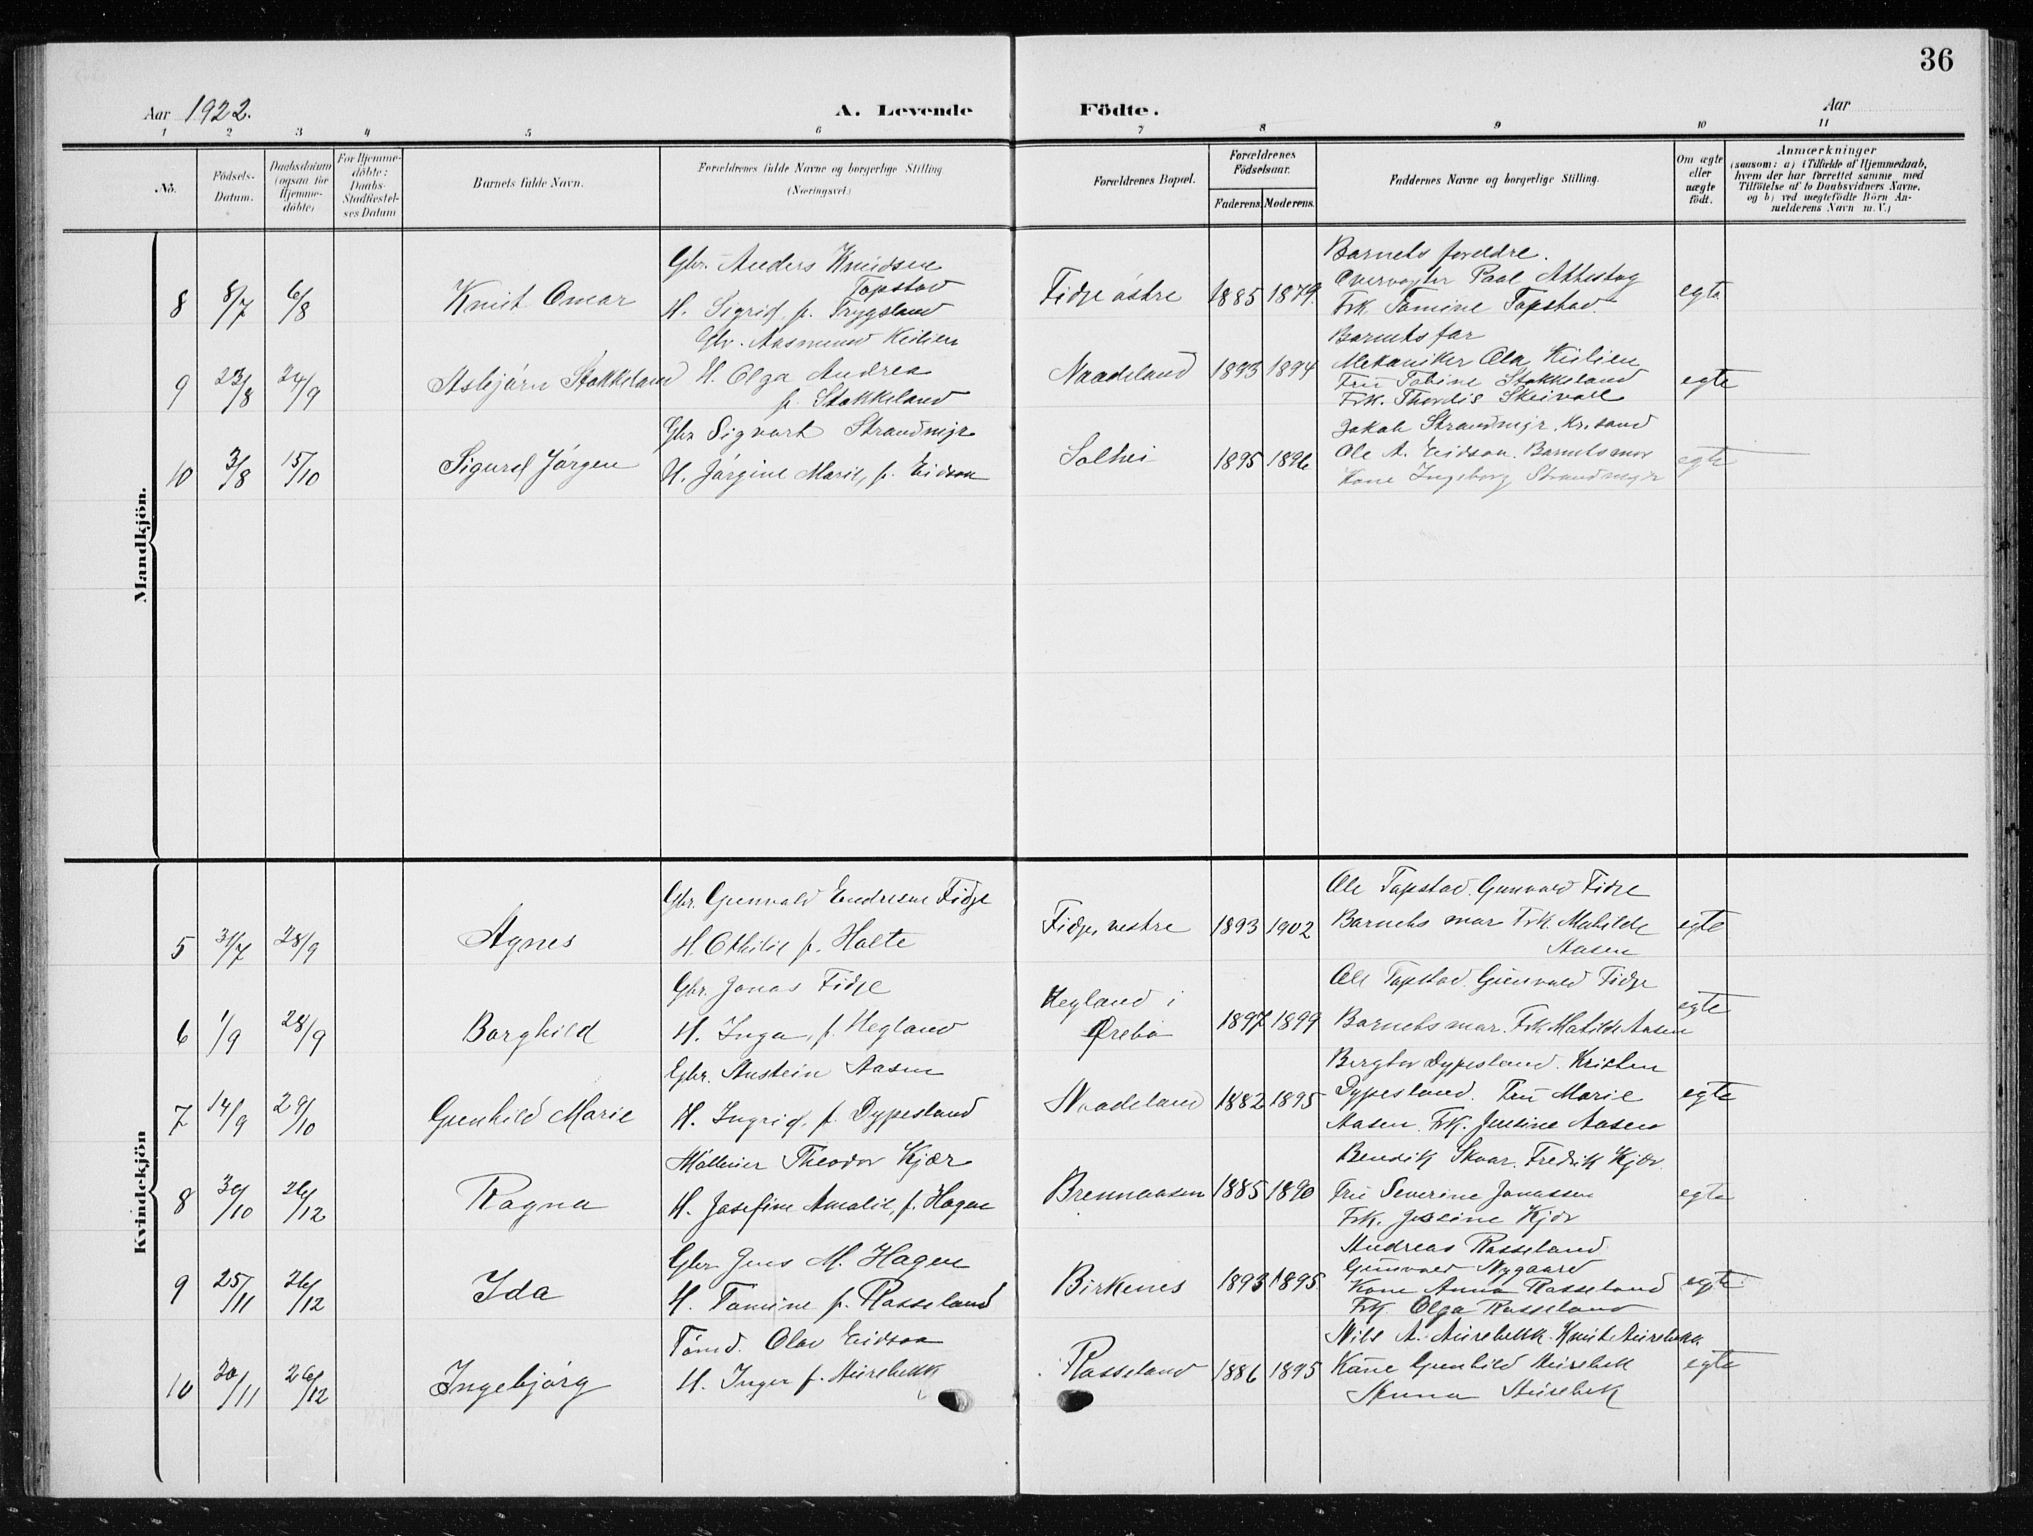 36
Aar 1922.
A. Levende Födte.
Aar
1 2 3 4 5 6 7 8 9 10 11
No.
Födsels-
Datum.
Daabsdatum
(ogsaa for
Hjemme-
døbte)
For Hjemme-
døbte:
Daabs-
Stadfæstel-
ses Datum
Barnets fulde Navn.
Forældrenes fulde Navne og borgerlige Stilling
(Næringsvei.)
Forældrenes Bopæl.
Forældrenes
Födselsaar.
Faderens. Moderens.
Faddernes Navne og borgerlige Stilling.
Om ægte
eller
uægte
født.
Anmærkninger
(saasom: a) i Tilfælde af Hjemmedaab,
hvem der har forrettet samme med
Tilföielse af to Daabsvidners Navne,
og b) ved uægtefödte Börn An-
melderens Navn m. V.)
Mandkjön.
8 8/7 6/8
Knut Omar
Gbr. Anders Knudsen
Tapstad
H. Sigrid, f. Trygsland
Fidje östre
1885 1879.
Barnets foreldre.
Opervogter Paal
Frk Tomine Tapstad
egte
9 23/8 24/9
Asbjörn Stokkeland
Gbr. Aasmund Keilien
H. Olga Andrea
f. Stokkeland
Naadeland
1893 1894
Barnets far
Mekaniker Ola Keilien
Fru Tobine Stokkeland
Frk. Thordis Skeivoll
egte
10 3/8 15/10
Sigurd Jörgen
Gbr Sigvart Strandmyr
H. Jörgine Marie, f. Eidsaa
Solhei
1895 1896
Jakob Strandmyr, Kr.sand
Ole A. Eidsaa. Barnets mor
Kone Ingeborg Strandmyr
egte
Kvindekjön
5 31/7 28/9
Agnes
Gbr. Gunvald Endresen Fidje
H. Othilie f. Holte
Fidje, vestre
1893 1902
Ole Tapstad. Gunvald Fidje
Barnets mor Frk. Mathilde
Aasen
egte
6 1/9 28/9
Borghild
Gbr. Jonas Fidje
H. Inga, f. Hegland
Hegland i
Örebö
1897 1899
Ole Tapstad. Gunvald Fidje
Barnets mor. Frk Matilde Aasen
egte
7 14/9 29/10
Gunhild Marie
Gbr. Austein Aasen
H. Ingrid, f. Dypesland
Naadeland
1882 1895
Bergtor Dypesland. Kristen
Dypesland. Fru Marie
Aasen. Frk. Justine Aasen
egte
8 30/10 26/12
Ragna
Möllerier Theodor Kjær
H. Josefine Amalie, f. Hagen
Brennaasen
1885 1890
Bendik Skaar. Fredrik Kjær.
Fru Severine Jonassen
Frk. Josine Kjær
egte
9 25/11 26/12
Ida
Gbr Jens M. Hagen
H. Tomine f. Rosseland
Birkenes
1893 1895.
Andreas Rosseland
Gunvald Nygaard
Kone Anna Rosseland
Frk. Olga Rosseland
egte
10 20/11 26/12
Ingebjörg
Tömd. Olav Eidsaa
H. Inger f. Aurebekk
Rosseland
1886 1895
Nils A. Aurebekk. Knut Aurebekk
Kone Gunhild Aurebek
Anna Aurebek
egte